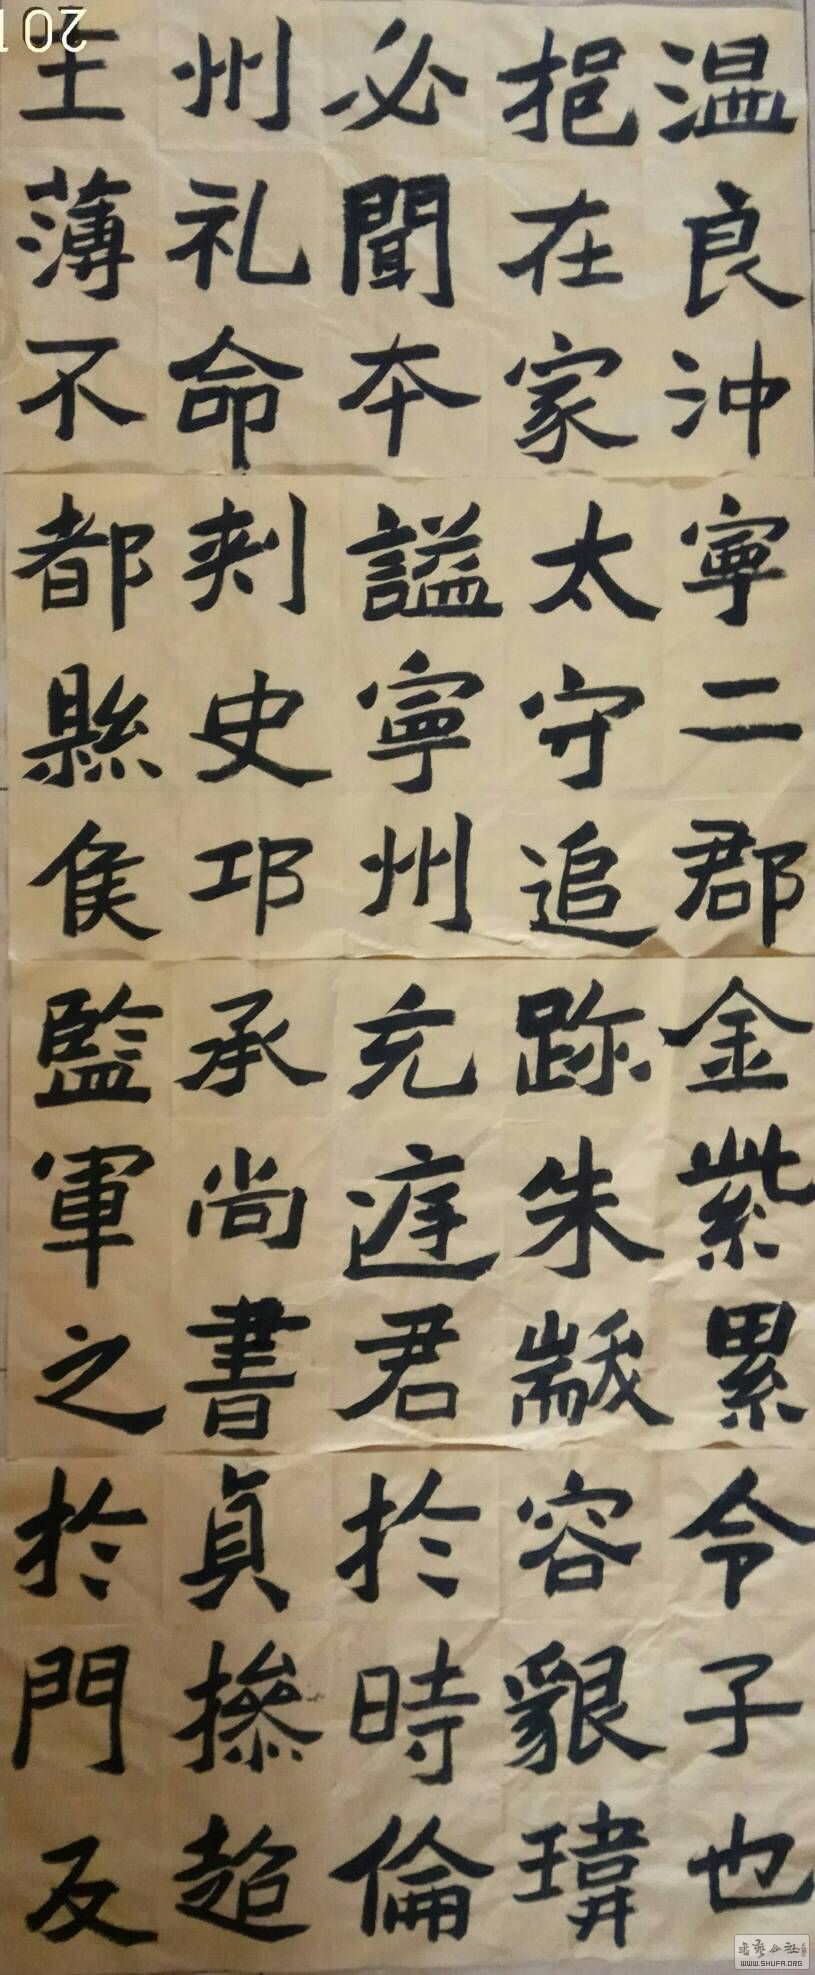 温良沖寧二郡金紫累令子也
挹在家太守追跡朱黻容貌瑋
必聞本謚寧州充庭君於時倫
州礼命刾史邛承尚書貞操超
主薄不都縣侯監軍之於門友
201
书艺公社
WWW.SHUFA.ORG